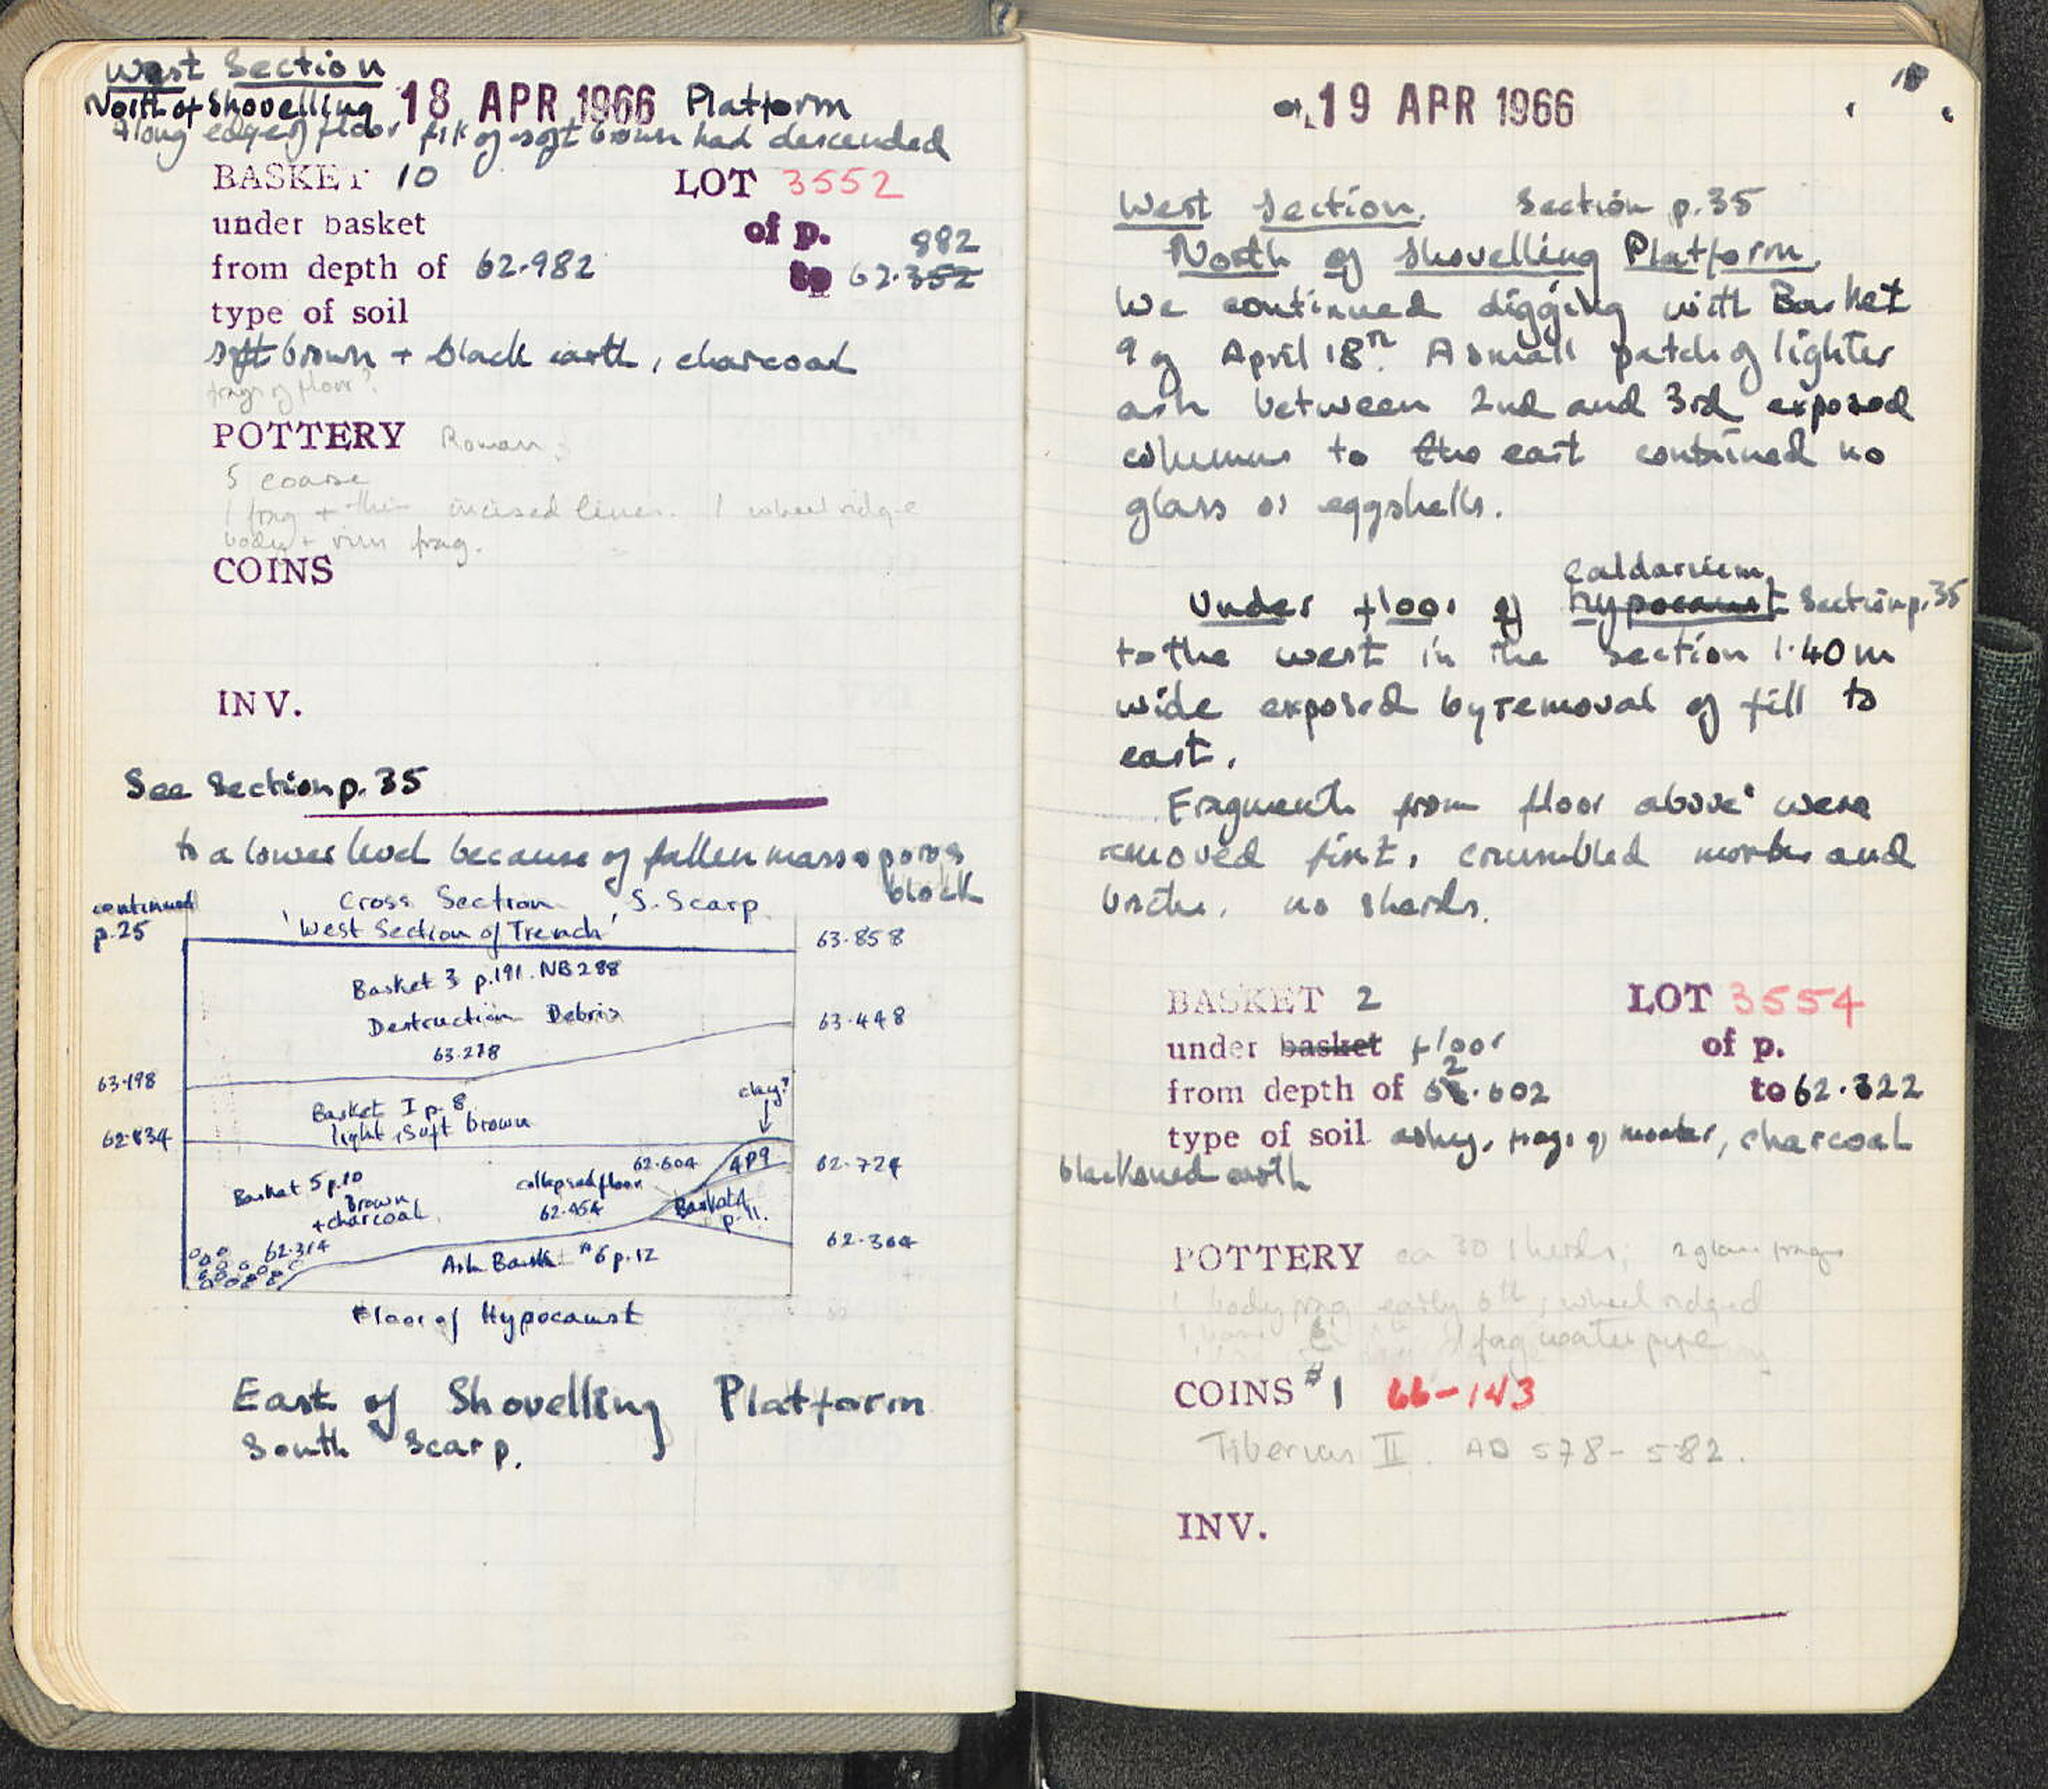 West Section
North of Shovelling 18 APR 1966 Platform
Along edge of floor fill of soft brown had descended
BASKET 10 LOT 3552
under basket of p.
882
from depth of 62.982 to 62.352
type of soil
soft brown + black earth, charcoal
frags of floor?
POTTERY Roman;
5 coarse
1 frag + thin incised lines. 1 wheel ridge
body + rim frag.
COINS
INV.
See Section p. 35
to a lower level because of fallen mass poros
block
continued
p. 25
Cross Section S. Scarp
'West Section of Trench'
63.858
Basket 3 p. 191. NB 288
Destruction Debris
63.448
63.278
63.198
clay?
Basket I p. 8
light, soft brown
62.834
62.604
4 p 9
62.724
Basket 5 p. 10
brown
+ charcoal
collapsed floor
62.454
Basket 4
p. 11.
62.314
62.304
Ash Bask #6 p. 12
Floor of Hypocaust
East of Shovelling Platform
South Scarp.
19 APR 1966
West Section. Section p. 35
North of Shovelling Platform.
We continued digging with Basket
9 of April 18th. A small patch of lighter
ash between 2nd and 3rd exposed
columns to the east contained no
glass or eggshells.
Caldarium,
Under floor of hypocaust Section p. 35
to the west in the section 1.40 m
wide exposed by removal of fill to
east.
Fragments from floor above were
removed first, crumbled mortar and
bricks. no sherds.
BASKET 2 LOT 3554
under basket floor of p.
from depth of 62.602 to 62.322
type of soil ashy, frags of mortar, charcoal
blackened earth
POTTERY ca 30 sherds; 2 glass frags
1 body frag early 6th, wheel ridged
1 frag water pipe
COINS #1 66-143
Tiberius II. AD 578-582.
INV.